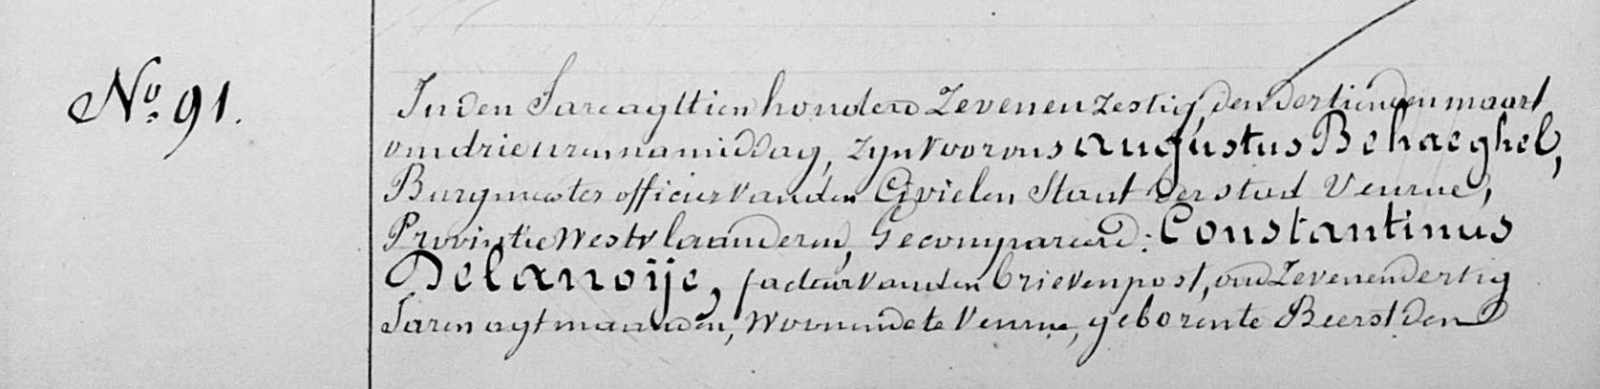 No. 91.
In den Jare agttien honderd Zevenen zestig, den dertienden maart
om drie uren namiddag, zyn voor ons Augustus Behaeghel,
Burgmeester officier van den Civielen Staat der stad Veurne,
Provintie Westvlaanderen, Gecompareerd: Constantinus
Delanoije, facteur van den brievenpost, oud Zevenendertig
Jaren agt maanden, Woonende te Veurne, geboren te Beerst den